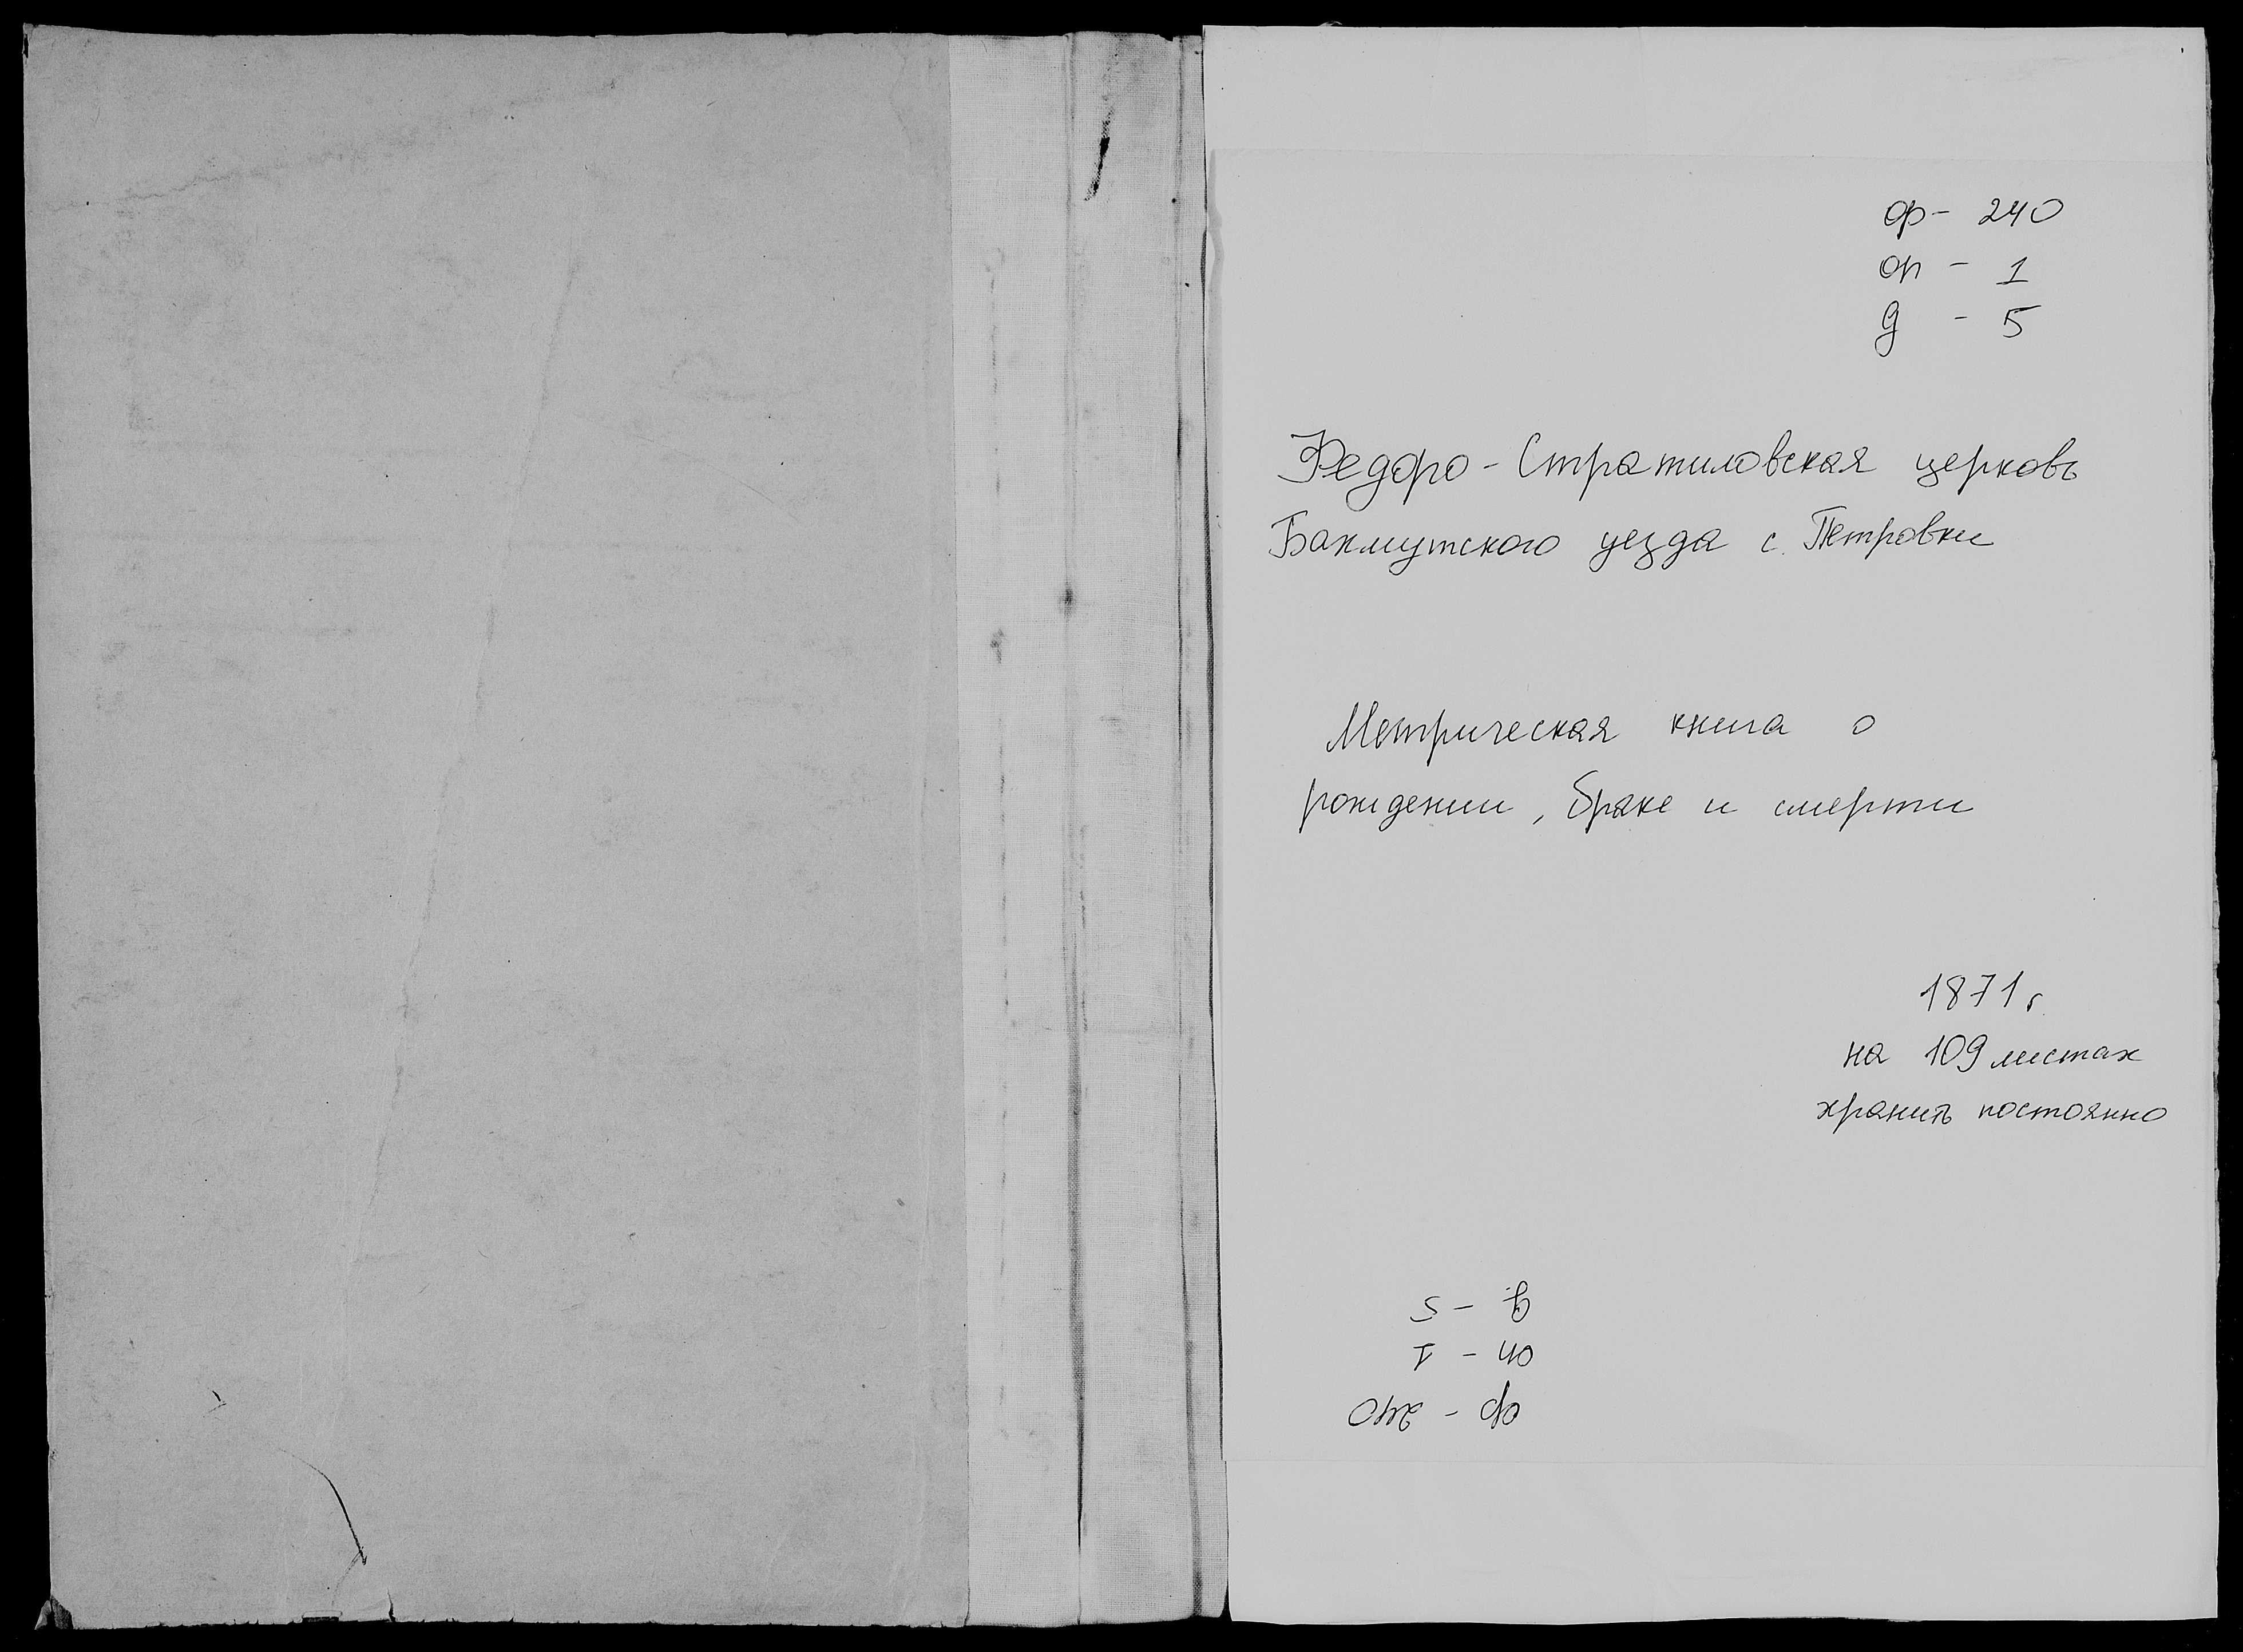 ф- 240
оп - 1
д - 5
Федоро-Стратиловская церковь
Бахмутского уезда с. Петровки
Метрическая книга о
рождении, браке и смерти
1871 г.
на 109 листах
хранить постоянно
ф - 240
оп - 1
д - 5